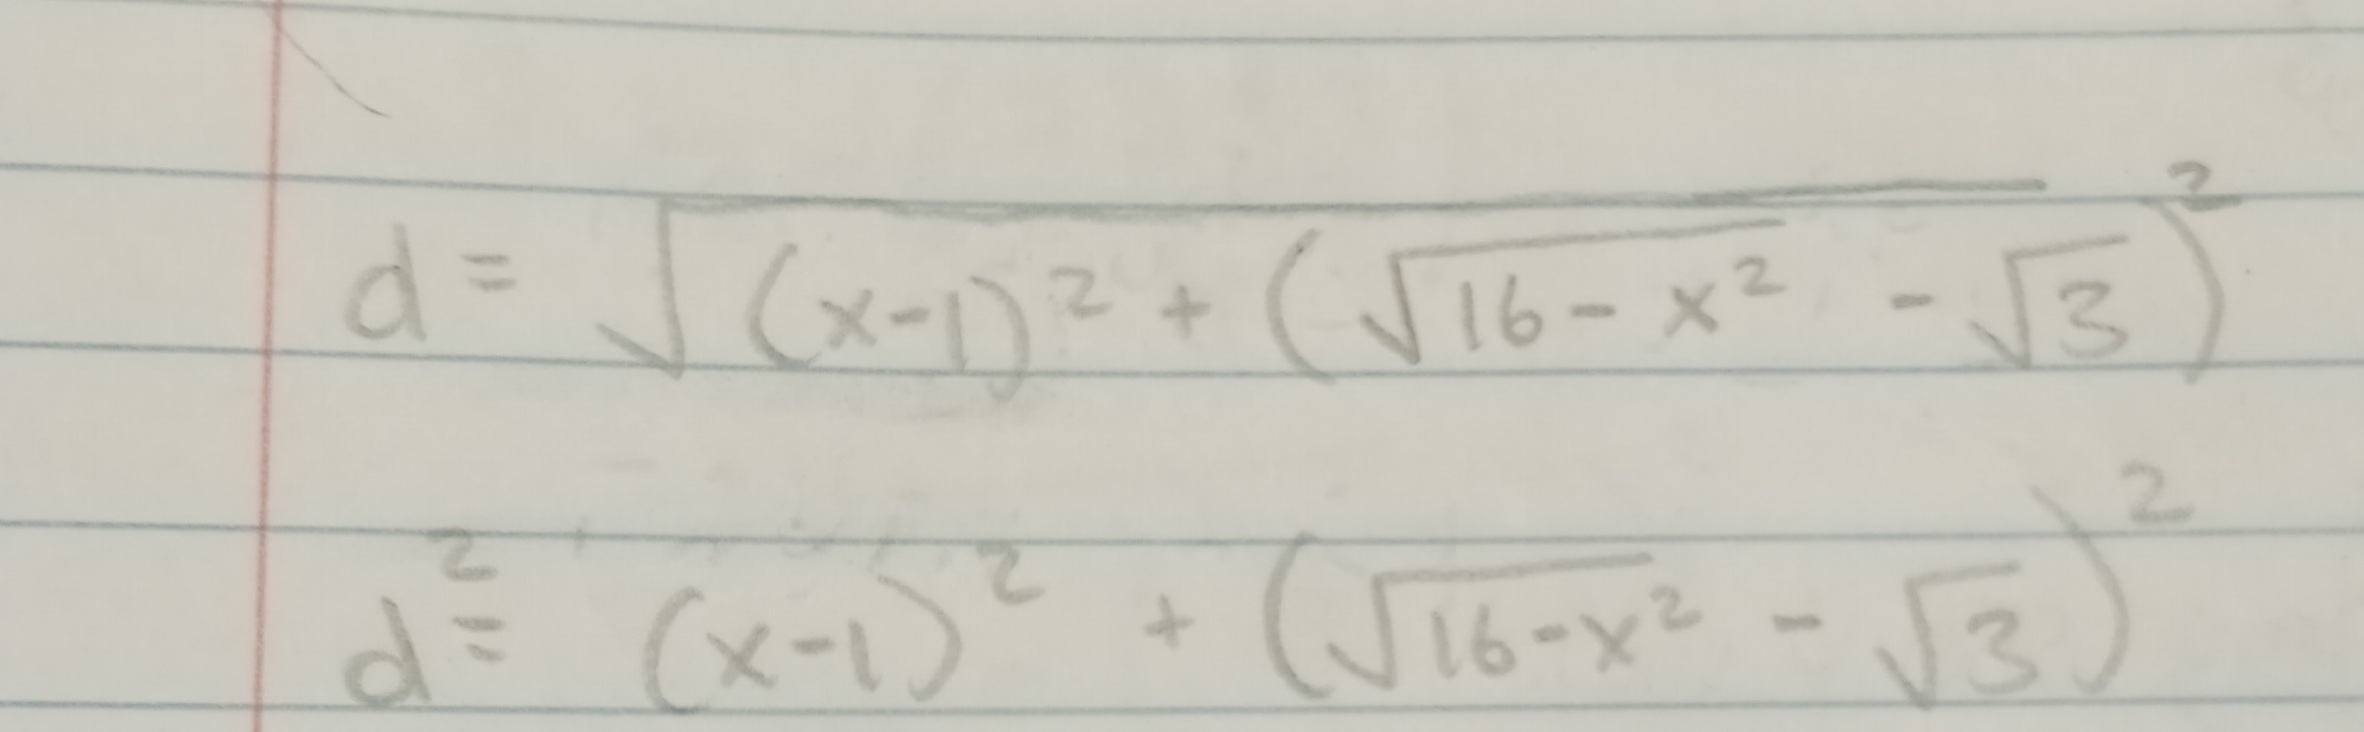 d = √((x-1)² + (√(16-x²) - √3)²)
d² = (x-1)² + (√(16-x²) - √3)²